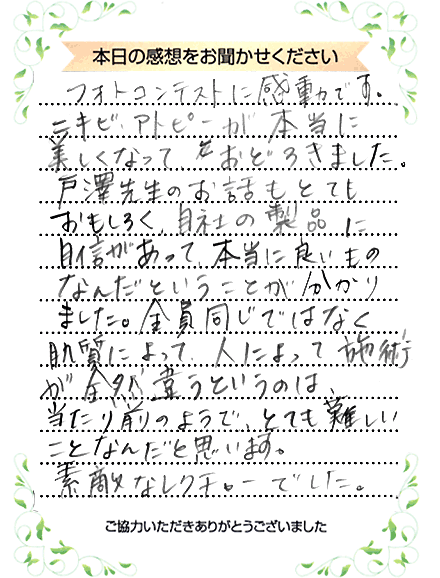 本日の感想をお聞かせください
フォトコンテストに感動です。
ニキビ、アトピーが本当に
美しくなっておどろきました。
戸澤先生のお話もとても
おもしろく、自社の製品に
自信があって、本当に良いもの
なんだということが分かり
ました。全員同じではなく
肌質によって、人によって施術
が全然違うというのは、
当たり前のようで、とても難しい
ことなんだと思います。
素敵なレクチャーでした。
ご協力いただきありがとうございました